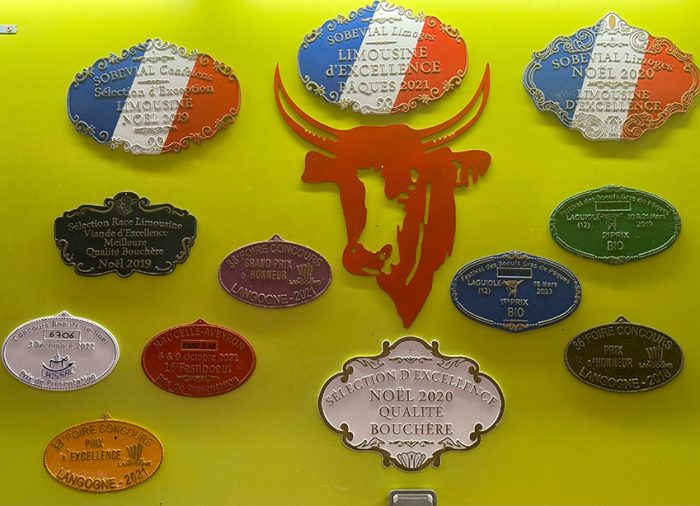 SOBEVIAL Limoges
LIMOUSINE
d'EXCELLENCE
PAQUES 2021
SOBEVIAL Limoges
NOËL 2020
LIMOUSINE
D'EXCELLENCE
SOBEVIAL
Sélection d'Exception
LIMOUSINE
NOËL 2019
Sélection Race Limousine
Viande d'Excellence
Meilleure
Qualité Bouchère
Noël 2019
FOIRE CONCOURS
GRAND PRIX
d'HONNEUR
LANGOGNE
LANGOGNE-2021
Festival des Boeufs Gras de Pâques
LAGUIOLE
(12)
18 Mars
2023
1er PRIX
BIO
Festival des Boeufs Gras de Pâques
LAGUIOLE
(12)
30 & 31 Mars
2019
2e PRIX
BIO
Concours Boeufs de Noël
6706
3 Décembre 2022
LAISSAC
Prix de Présentation
NAUCELLE-AVEYRON
8 & 9 Octobre 2021
Festiboeuf
Prix de Présentation
SÉLECTION D'EXCELLENCE
NOËL 2020
QUALITÉ
BOUCHÈRE
FOIRE CONCOURS
PRIX
d'HONNEUR
LANGOGNE-2021
FOIRE CONCOURS
PRIX
d'EXCELLENCE
LANGOGNE
LANGOGNE-2021